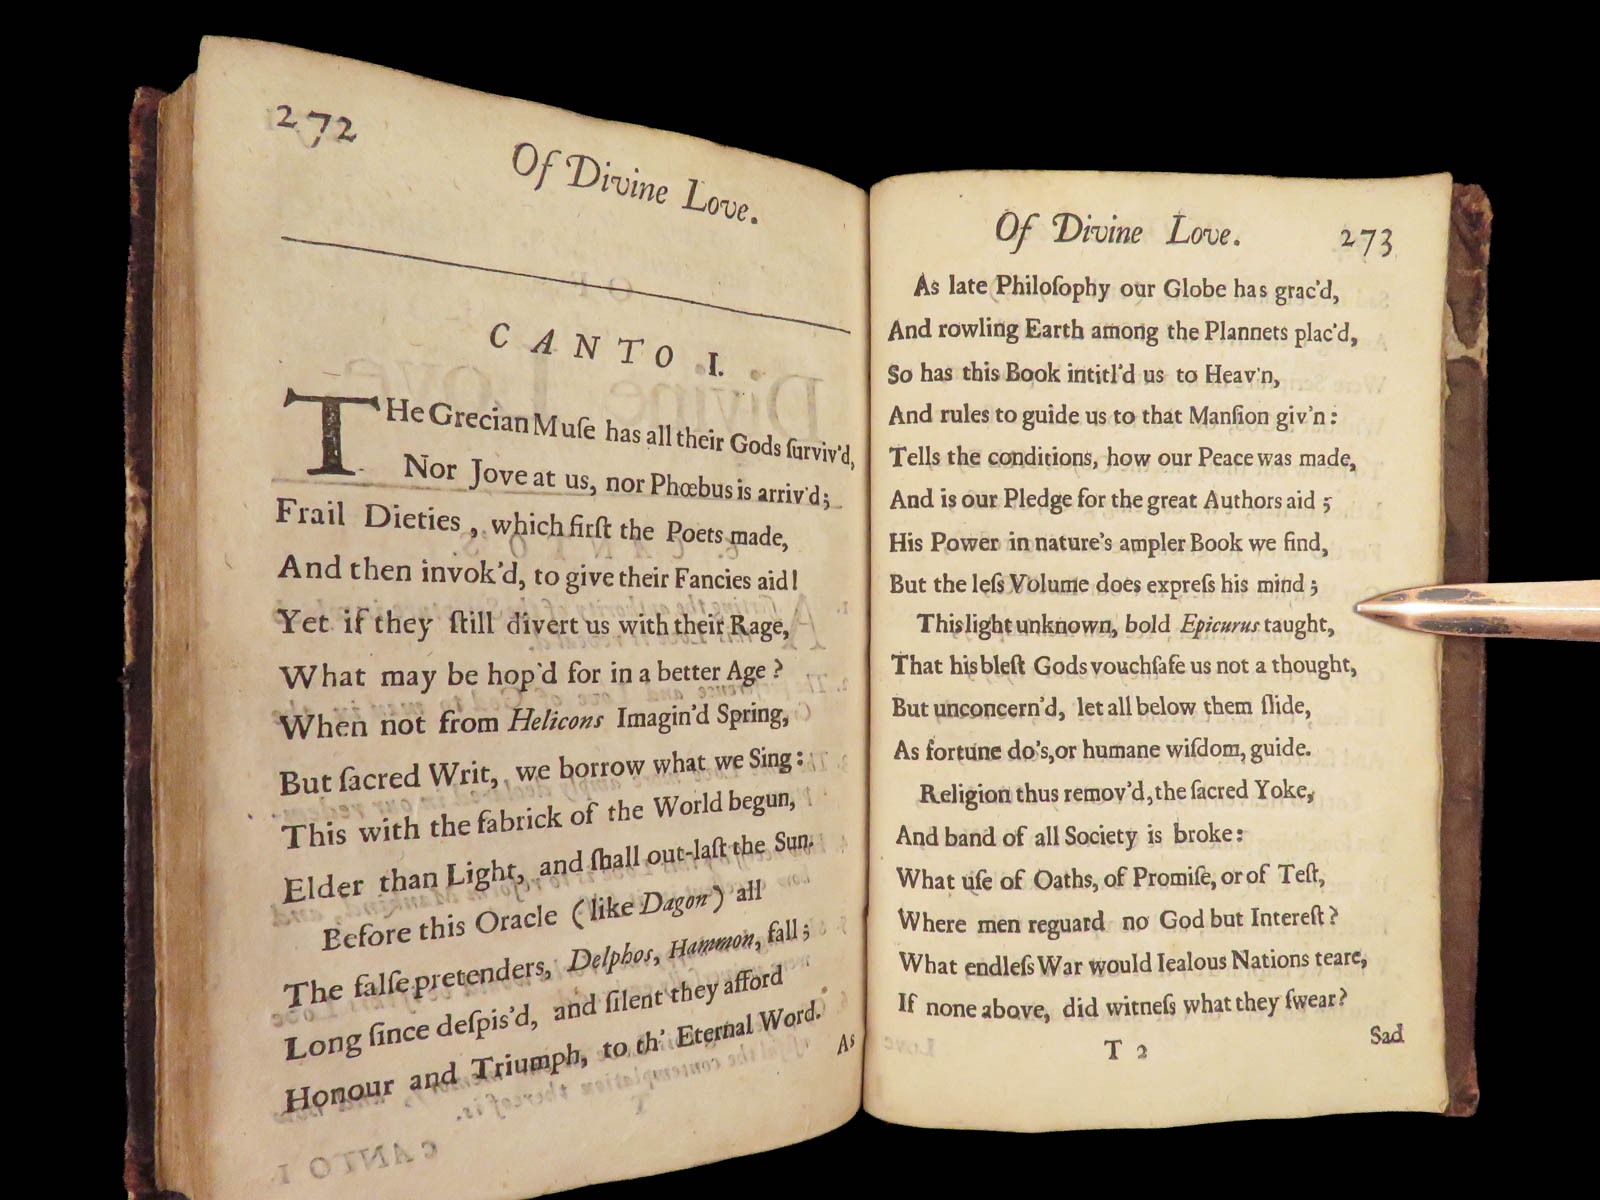 272
Of Divine Love.
CANTO I.
THe Grecian Muſe has all their Gods ſurviv'd,
Nor Jove at us, nor Phœbus is arriv'd;
Frail Dieties, which firſt the Poets made,
And then invok'd, to give their Fancies aid!
Yet if they ſtill divert us with their Rage,
What may be hop'd for in a better Age?
When not from Helicons Imagin'd Spring,
But ſacred Writ, we borrow what we Sing:
This with the fabrick of the World begun,
Elder than Light, and ſhall out-laſt the Sun.
Before this Oracle (like Dagon) all
The falſe pretenders, Delphos, Hammon, fall;
Long ſince deſpis'd, and ſilent they afford
Honour and Triumph, to th' Eternal Word.
As
Of Divine Love. 273
As late Philoſophy our Globe has grac'd,
And rowling Earth among the Plannets plac'd,
So has this Book intitl'd us to Heav'n,
And rules to guide us to that Manſion giv'n:
Tells the conditions, how our Peace was made,
And is our Pledge for the great Authors aid;
His Power in nature's ampler Book we find,
But the leſs Volume does expreſs his mind;
This light unknown, bold Epicurus taught,
That his bleſt Gods vouchſafe us not a thought,
But unconcern'd, let all below them ſlide,
As fortune do's, or humane wiſdom, guide.
Religion thus remov'd, the ſacred Yoke,
And band of all Society is broke:
What uſe of Oaths, of Promiſe, or of Teſt,
Where men reguard no God but Intereſt?
What endleſs War would Iealous Nations teare,
If none above, did witneſs what they ſwear?
T 2
Sad